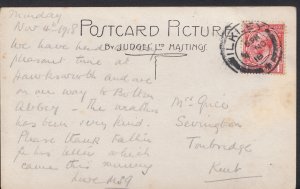 Monday
Nov 4th 1918
POSTCARD PICTUR
BY JUDGES LTD HASTINGS
ILKLEY
We have had
pleasant time at
Hawksworth and are
on our way to Bolton
Abbey - the weather
has been very kind.
Please thank Father
for his letter which
came this morning
Love
Sevington
Tonbridge
Kent